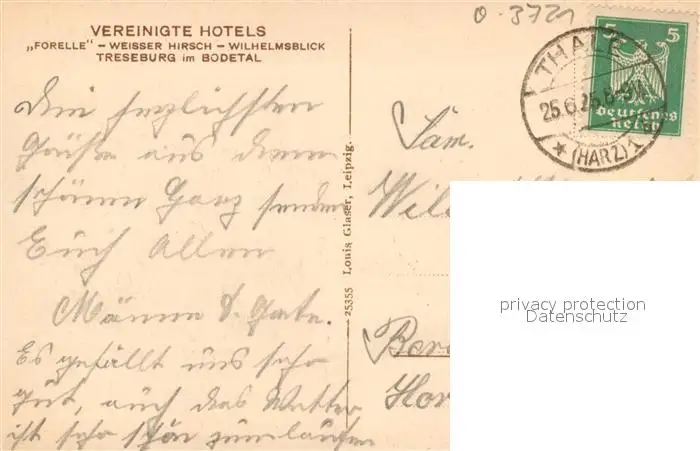 VEREINIGTE HOTELS
„FORELLE" – WEISSER HIRSCH – WILHELMSBLICK
TRESEBURG im BODETAL
Die herzlichsten
Grüße aus dem
schönen Harz senden
Euch Allen
Es gefällt uns sehr
gut, auch das Wetter
ist sehr schön zum laufen
25355 Louis Glaser, Leipzig.
0-3721
5 5
Deutsches
Reich
THALE
25.6.25.8-9V.
★ (HARZ) 1
Fam.
privacy protection
Datenschutz